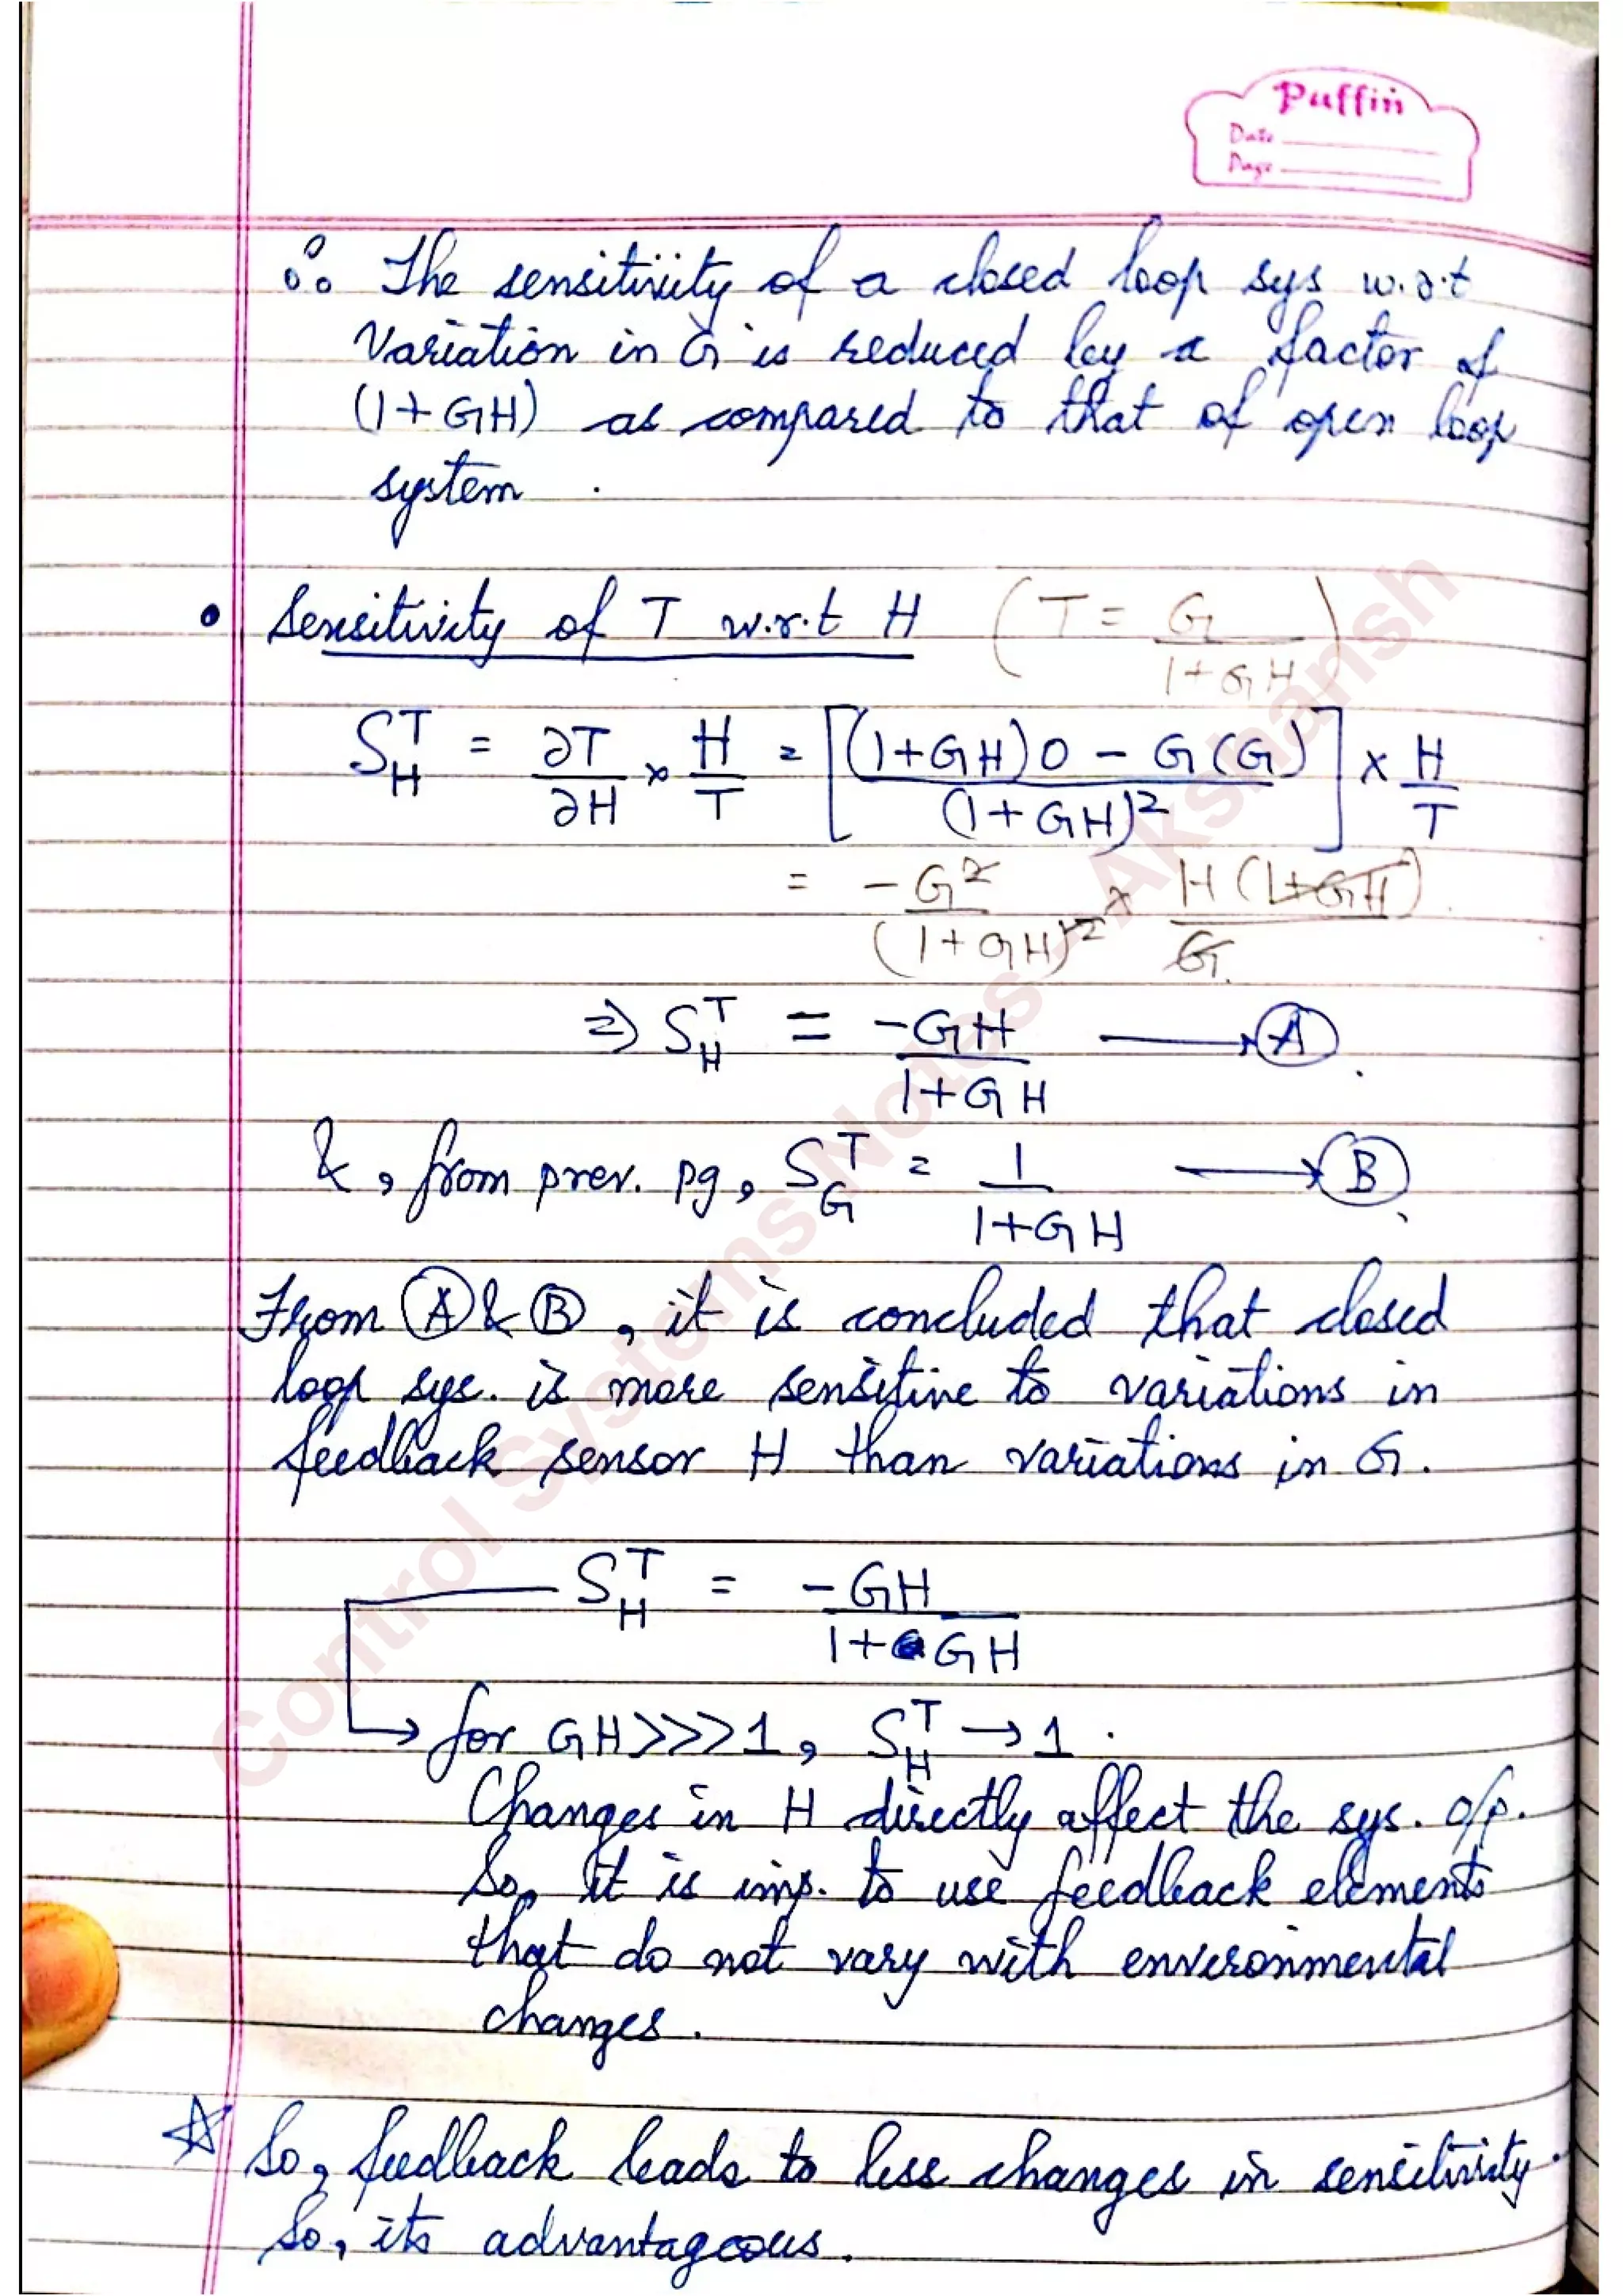 Puffin
Date
Page
∴ The sensitivity of a closed loop sys w.r.t
variation in G is reduced by a factor of
(1+GH) as compared to that of open loop
system .
• Sensitivity of T w.r.t H (T = G/(1+GH))
S_H^T = ∂T/∂H × H/T = [((1+GH)0 - G(G))/(1+GH)²] × H/T
= -G²/(1+GH)² × H(1+GH)/G
⇒ S_H^T = -GH/(1+GH) ⟶ Ⓐ
&, from prev. pg, S_G^T = 1/(1+GH) ⟶ Ⓑ
From Ⓐ & Ⓑ, it is concluded that closed
loop sys. is more sensitive to variations in
feedback sensor H than variations in G.
S_H^T = -GH/(1+GH)
→ for GH>>>1, S_H^T → 1.
Changes in H directly affect the sys. o/p.
So, it is imp. to use feedback elements
that do not vary with environmental
changes.
☆ So, feedback leads to less changes in sensitivity.
So, its advantageous.
Control Systems Notes - Akshansh